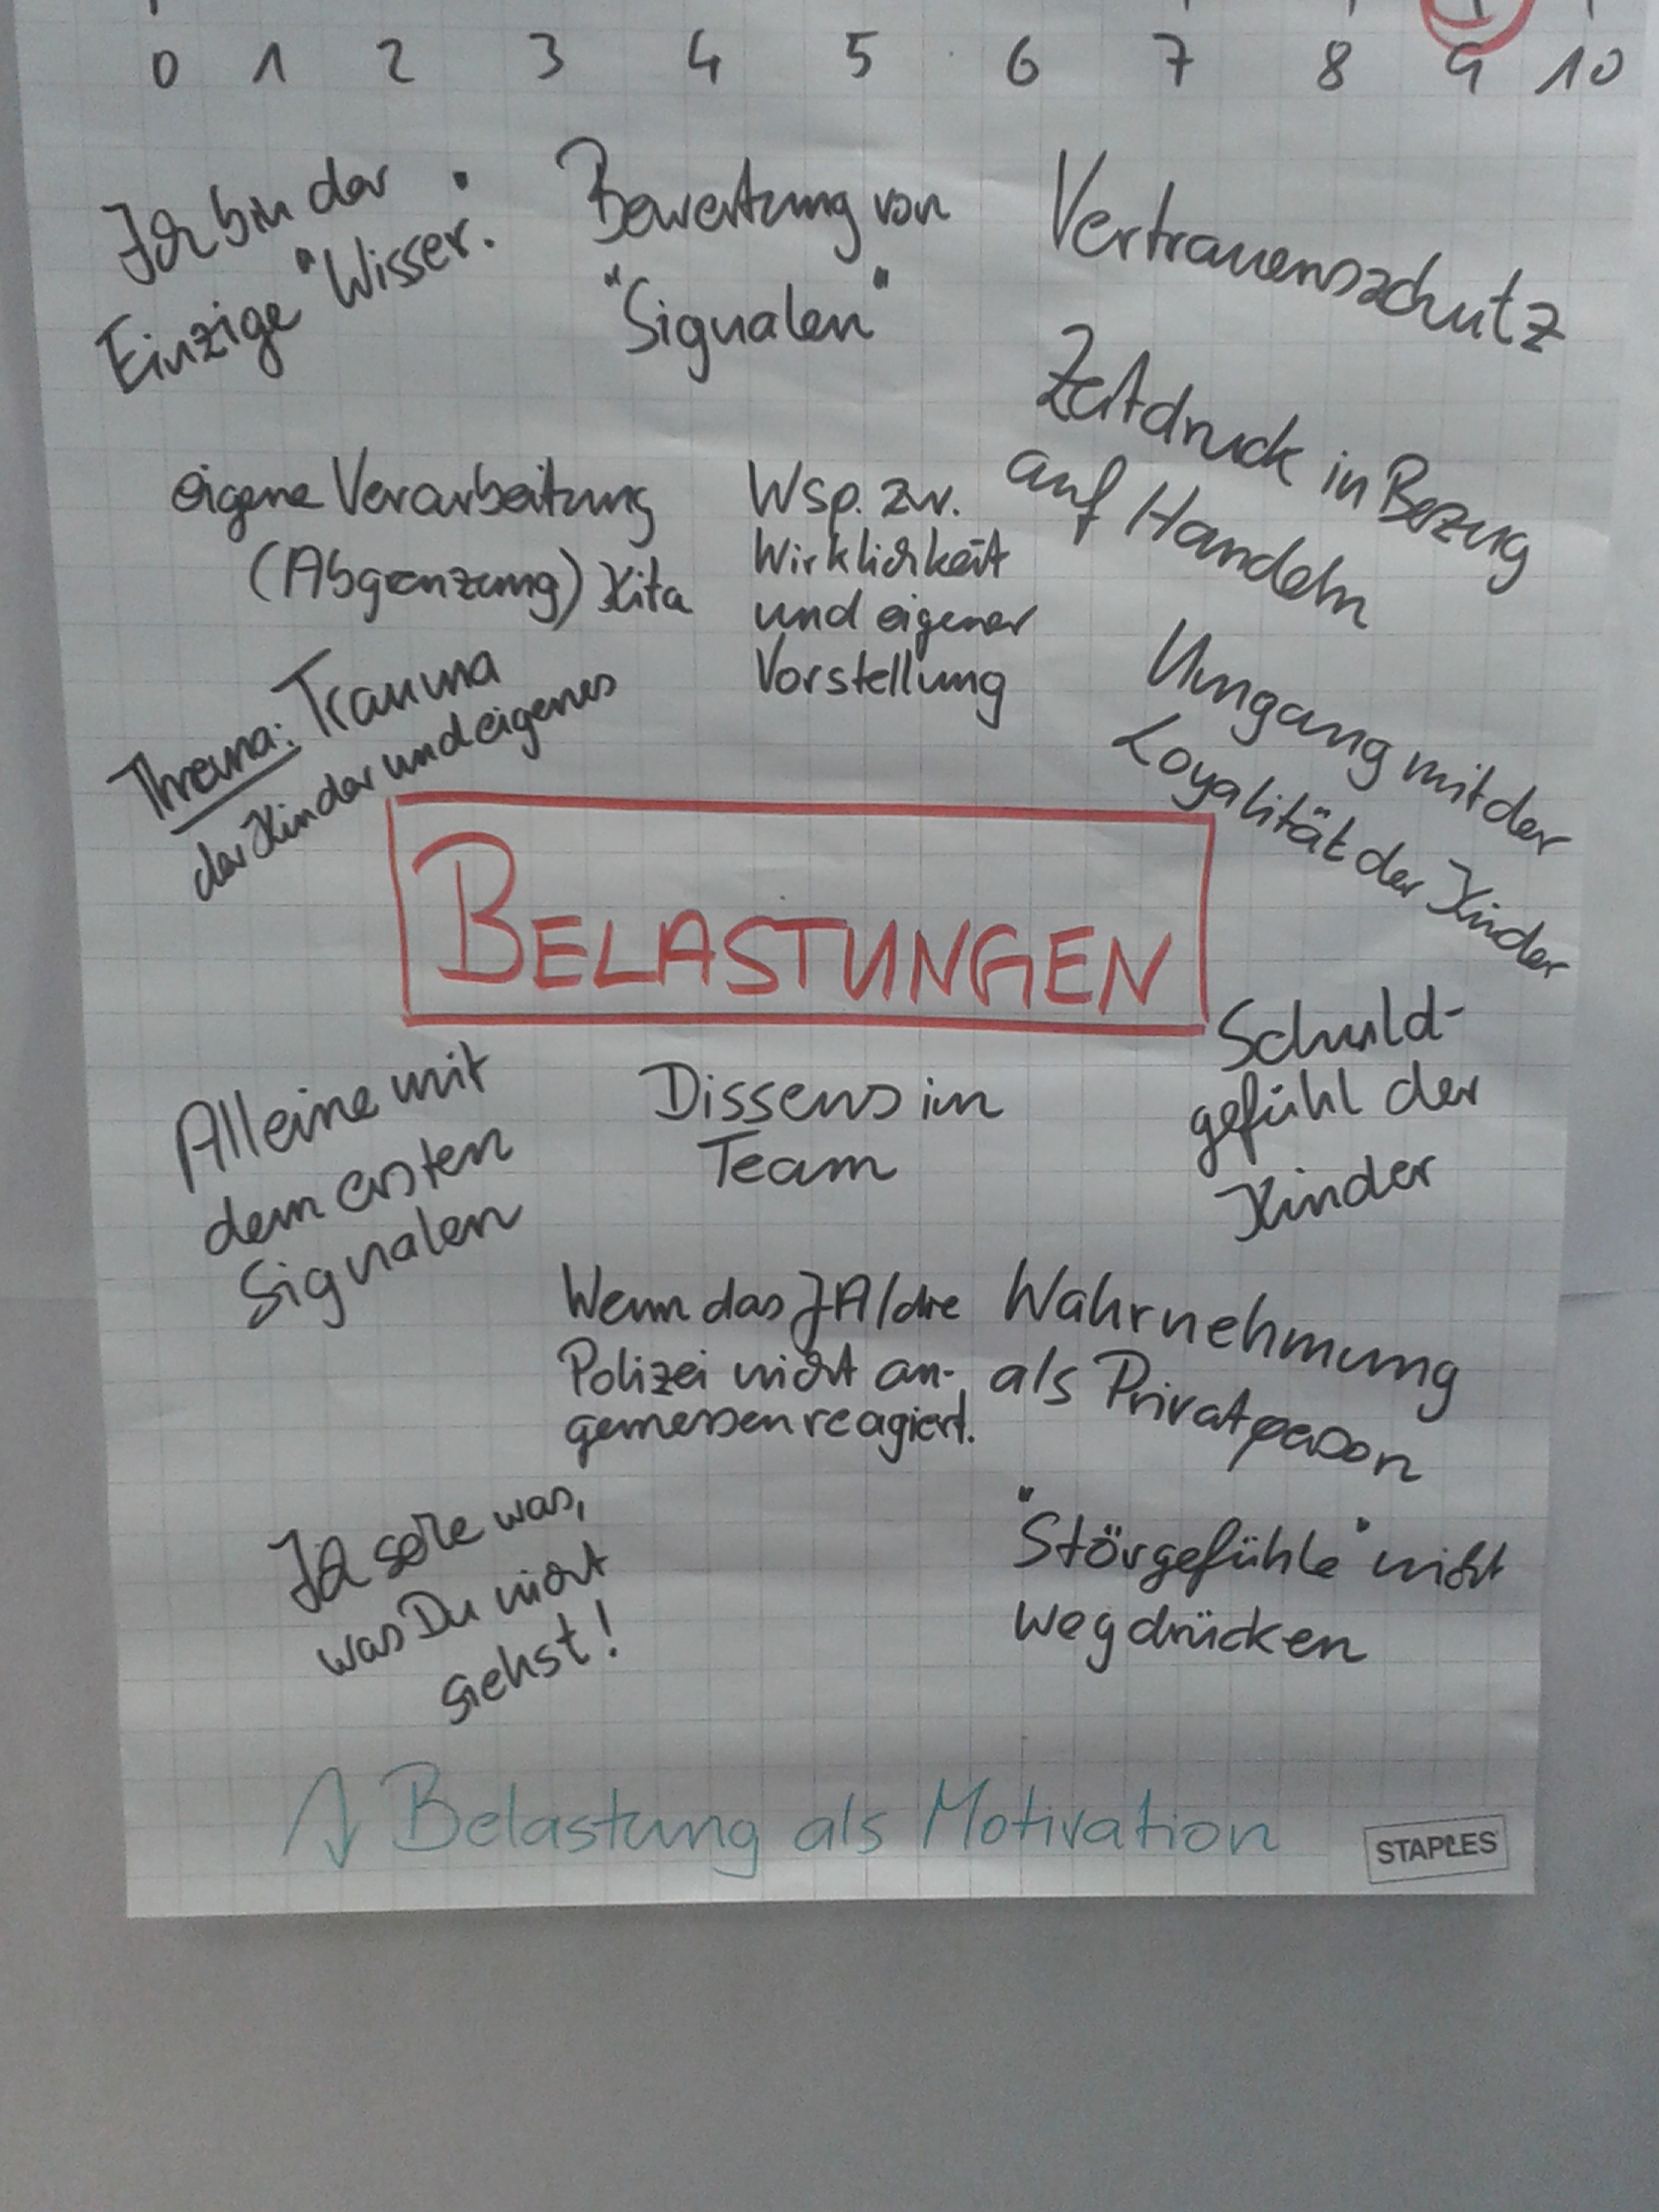 0 1 2 3 4 5 6 7 8 9 10
Ich bin der
Einzige "Wisser".
Bewertung von
"Signalen"
Vertrauensschutz
Zeitdruck in Bezug
auf Handeln
eigene Verarbeitung
(Abgrenzung) Kita
Wsp. zw.
Wirklichkeit
und eigener
Vorstellung
Umgang mit der
Loyalität der Kinder
Thema: Trauma
der Kinder und eigenes
BELASTUNGEN
Schuld-
gefühl der
Kinder
Alleine mit
dem ersten
Signalen
Dissens im
Team
Wenn das JA/die
Polizei nicht an-
gemessen reagiert.
Wahrnehmung
als Privatperson
Ich sehe was,
was Du nicht
siehst!
"Störgefühle" nicht
wegdrücken
Belastung als Motivation
STAPLES